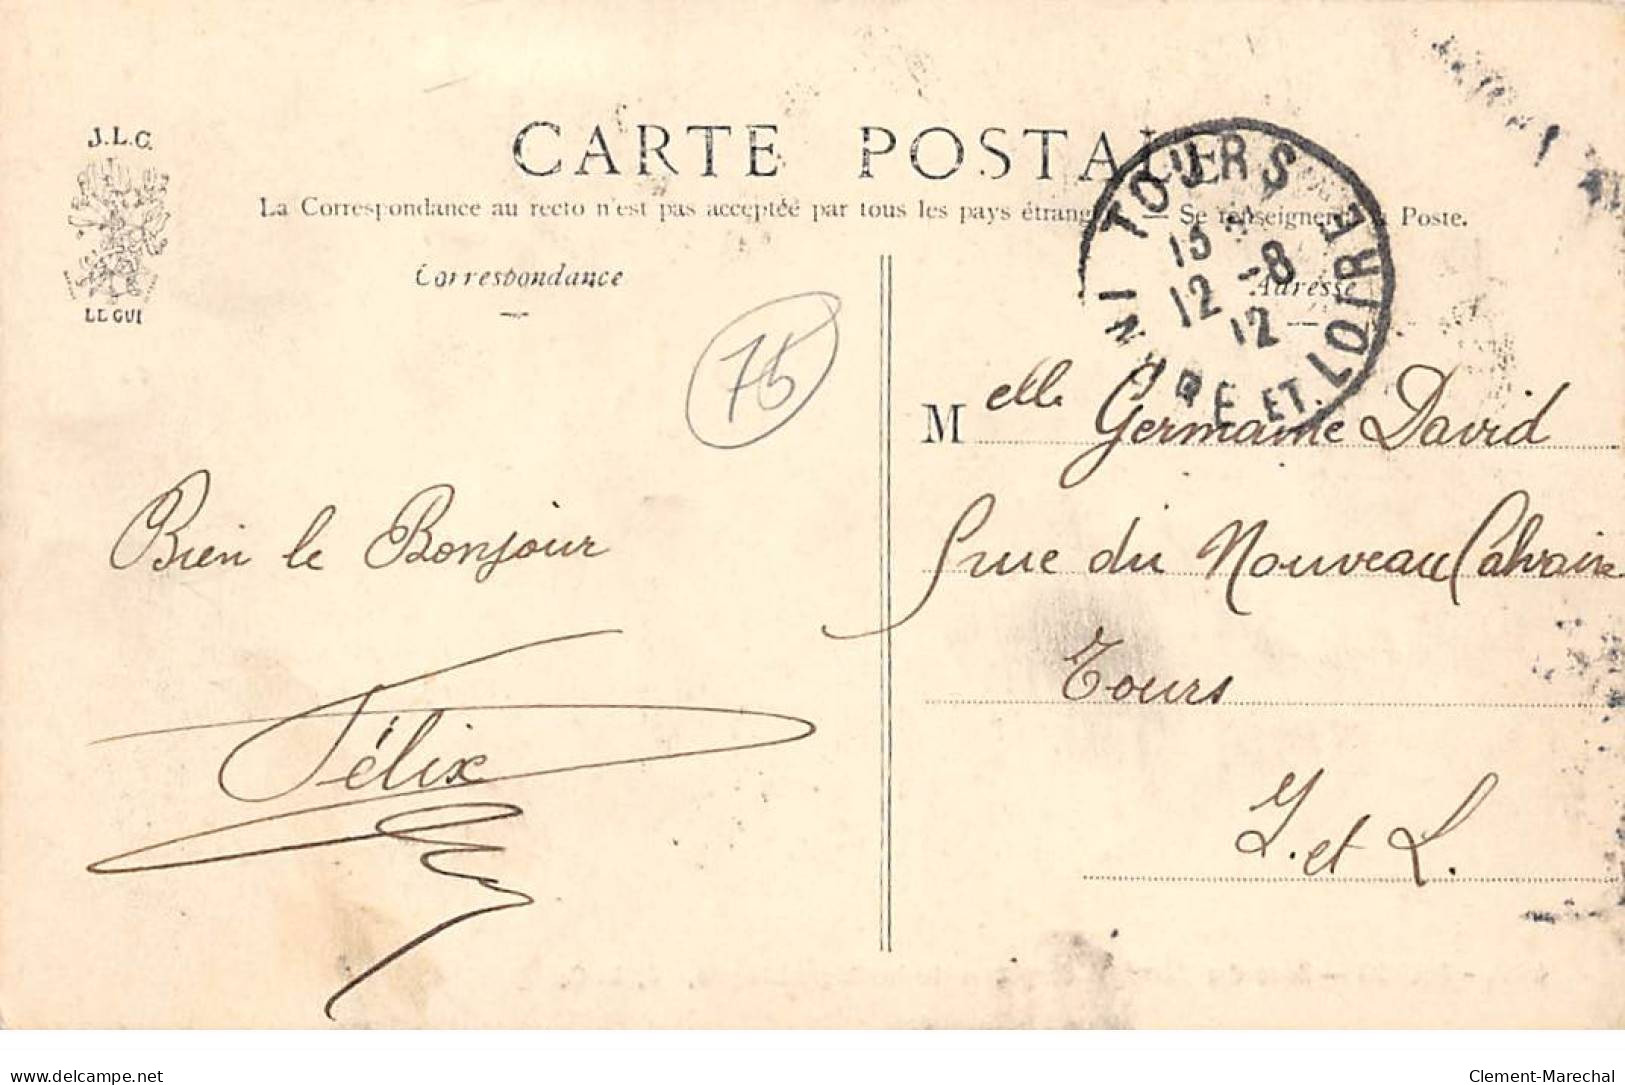 J.L.C.
LE GUI
CARTE POSTALE
La Correspondance au recto n'est pas acceptée par tous les pays étrangers — Se renseigner à la Poste.
Correspondance
Adresse
TOURS
INDRE ET LOIRE
12 -8
12
75
Melle Germaine David
rue du Nouveau Calvaire
Tours
I. et L.
Bien le Bonjour
Félix
www.delcampe.net
Clement-Marechal